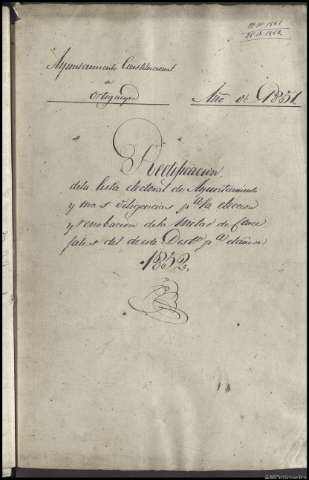 Ayuntamiento Constitucional
de
Ortigueira
Año de 1851
Rectificacion
dela lista electoral de Ayuntamiento
y mas diligencias pa. la eleccion
y renobacion dela Mitad de Conce
jales del de este Destto. pa. el año
1852.